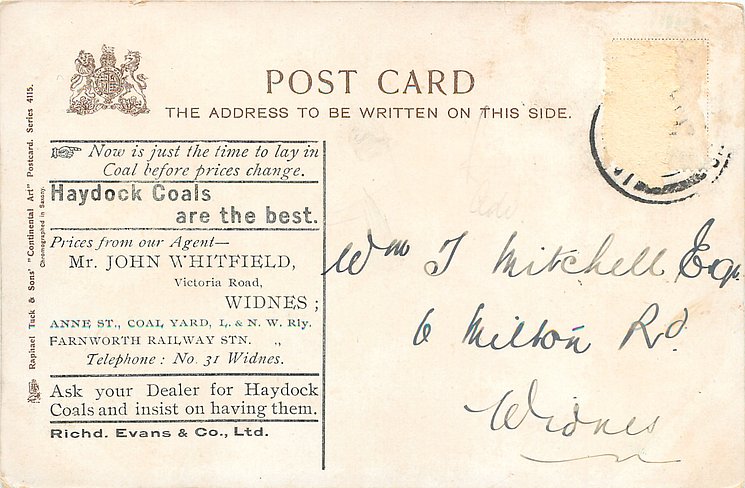 POST CARD
THE ADDRESS TO BE WRITTEN ON THIS SIDE.
Raphael Tuck & Sons' "Continental Art" Postcard. Series 4115.
Chromographed in Saxony.
Now is just the time to lay in
Coal before prices change.
Haydock Coals
are the best.
Prices from our Agent—
Mr. JOHN WHITFIELD,
Victoria Road,
WIDNES;
ANNE ST., COAL YARD, L. & N. W. Rly.
FARNWORTH RAILWAY STN. „
Telephone: No. 31 Widnes.
Ask your Dealer for Haydock
Coals and insist on having them.
Richd. Evans & Co., Ltd.
Wm T Mitchell Esqr
6 Milton Rd
Widnes